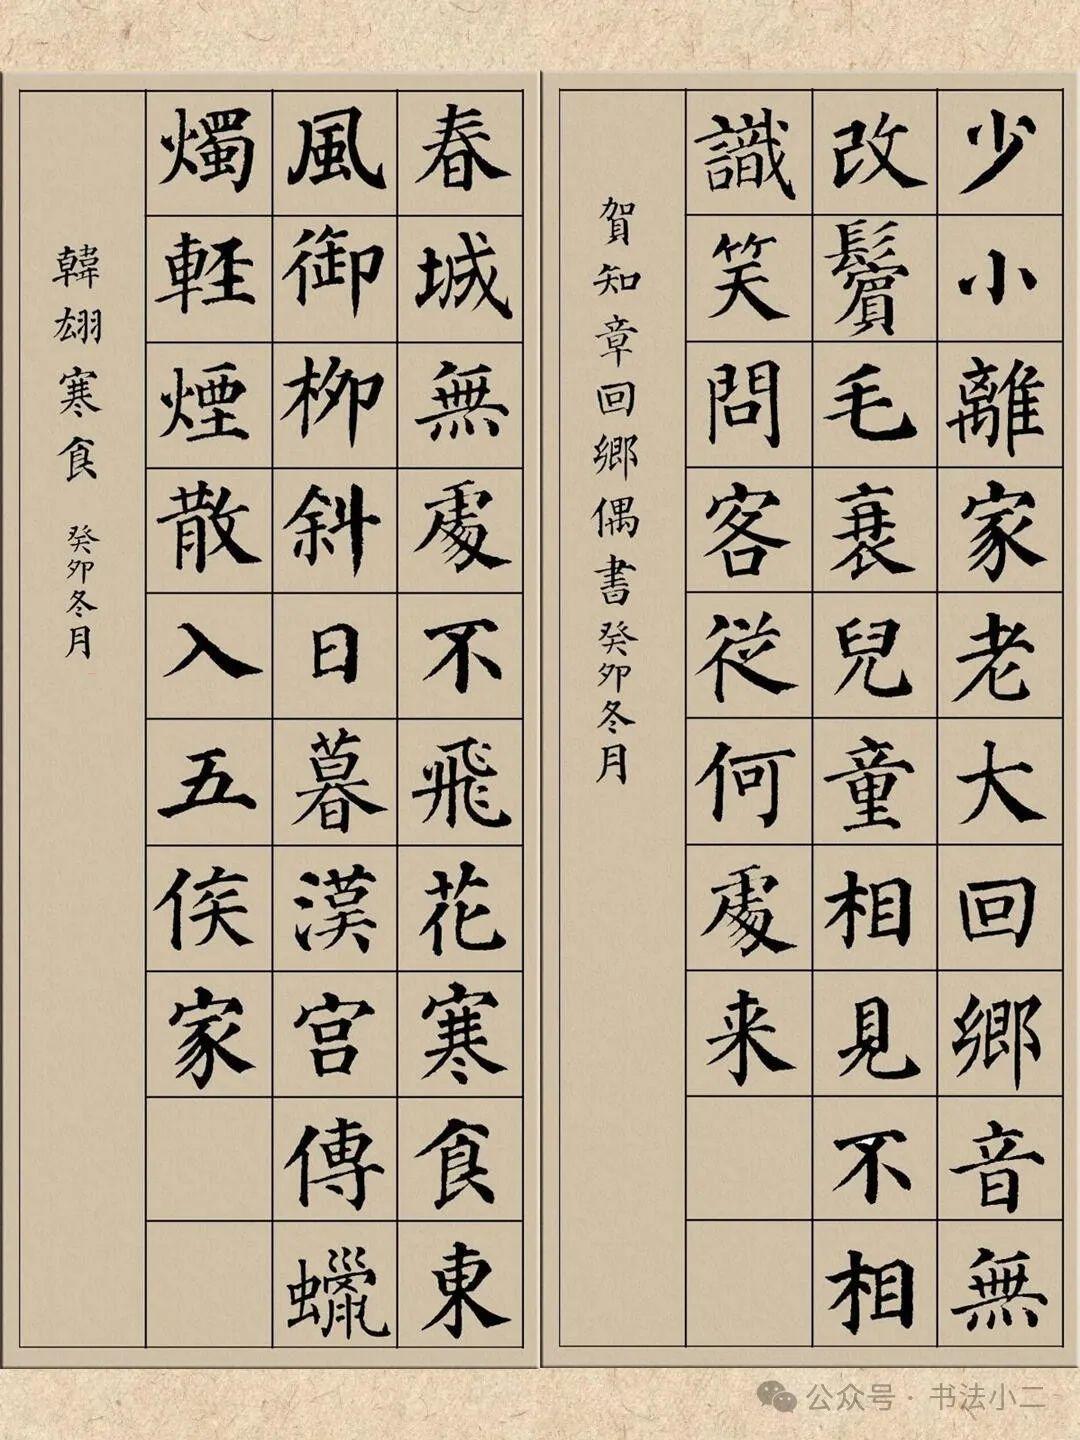 少小離家老大回鄉音無
改鬢毛衰兒童相見不相
識笑問客從何處来
賀知章回鄉偶書癸卯冬月
春城無處不飛花寒食東
風御柳斜日暮漢宫傳蠟
燭軽煙散入五侯家
韓翃寒食 癸卯冬月
公众号·书法小二